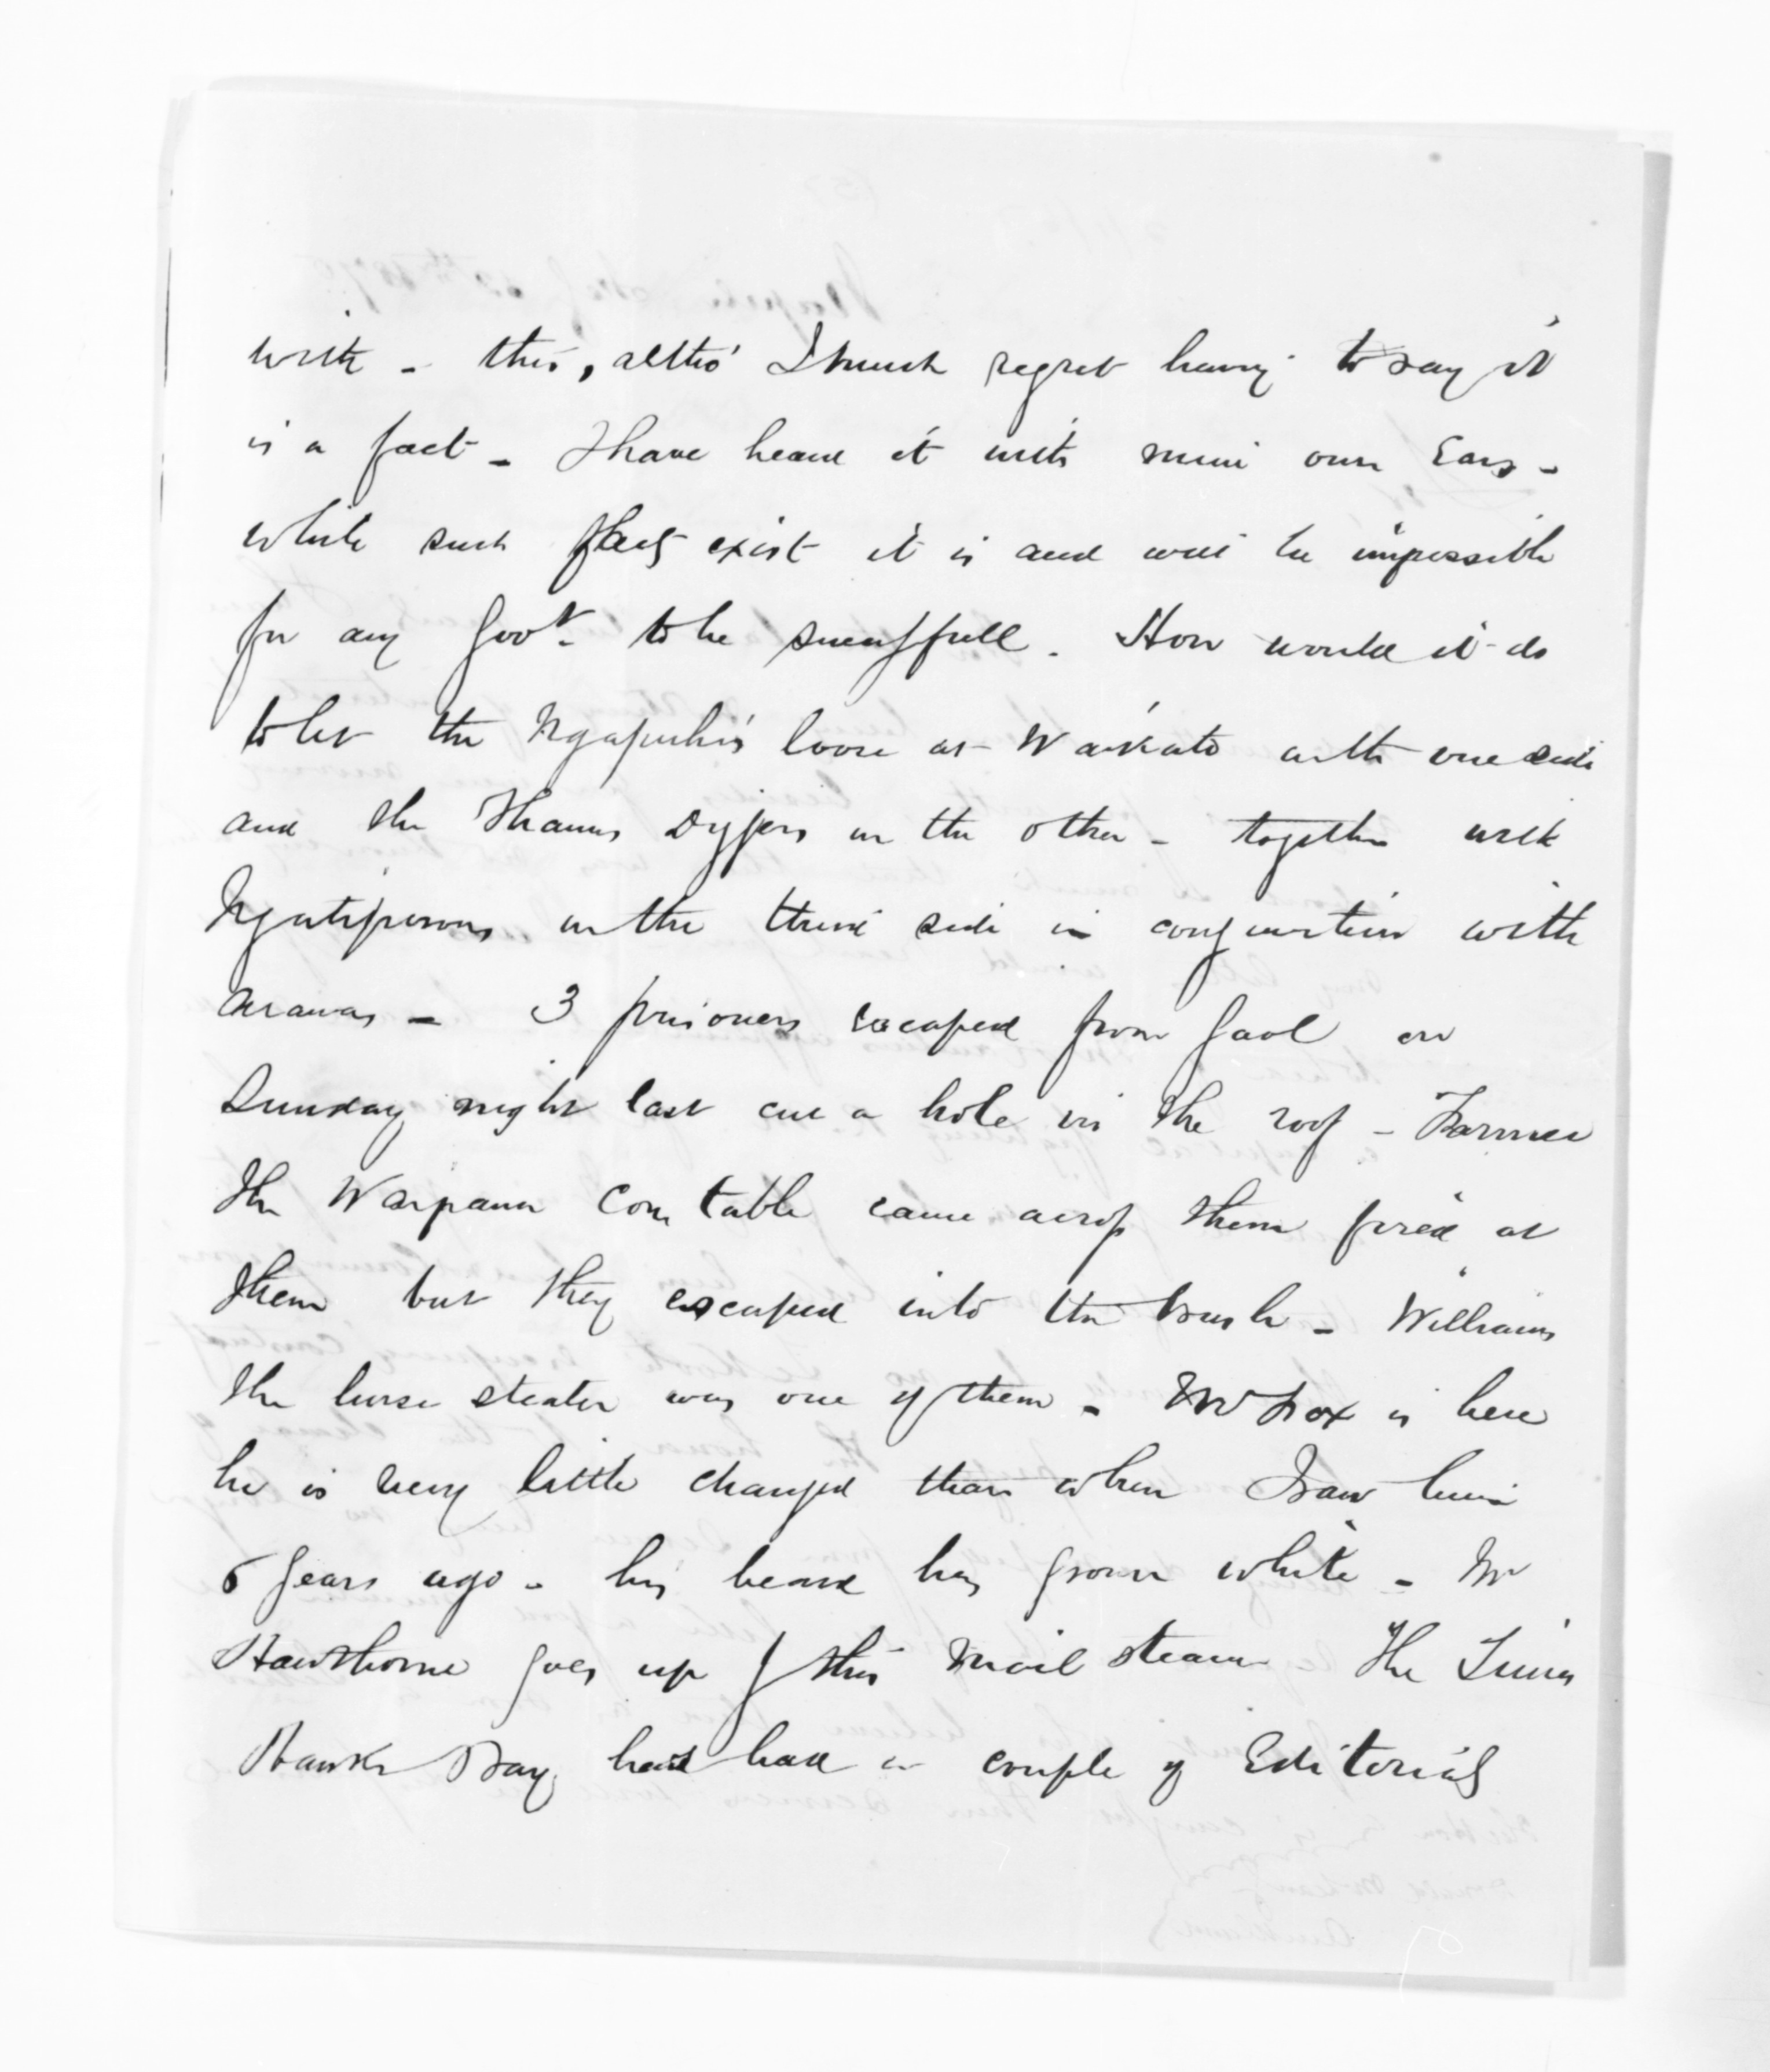 with - this, altho' I much regret having to say it
is a fact - I have heard it with mine own Ears -
while such facts exist it is and will be impossible
for any Govt. to be successfull. How would it do
to let the Ngapuhis loose at Waikato on the one side
and the Thames Diggers on the other - together with
Ngatiporou on the third side in conjunction with
Arawas - 3 prisoners escaped from Gaol on
Sunday night last cut a hole in the roof - Farmer
the Waipawa Constable came across them fired at
them but they escaped into the bush - Williams
the horse stealer was one of them - Mr Fox is here
he is very little changed than when I saw him
6 years ago - his beard has grown white - Mr
Hawthorne goes up p this Mail steamer The Times
Hawke Bay has had a couple of Editorials